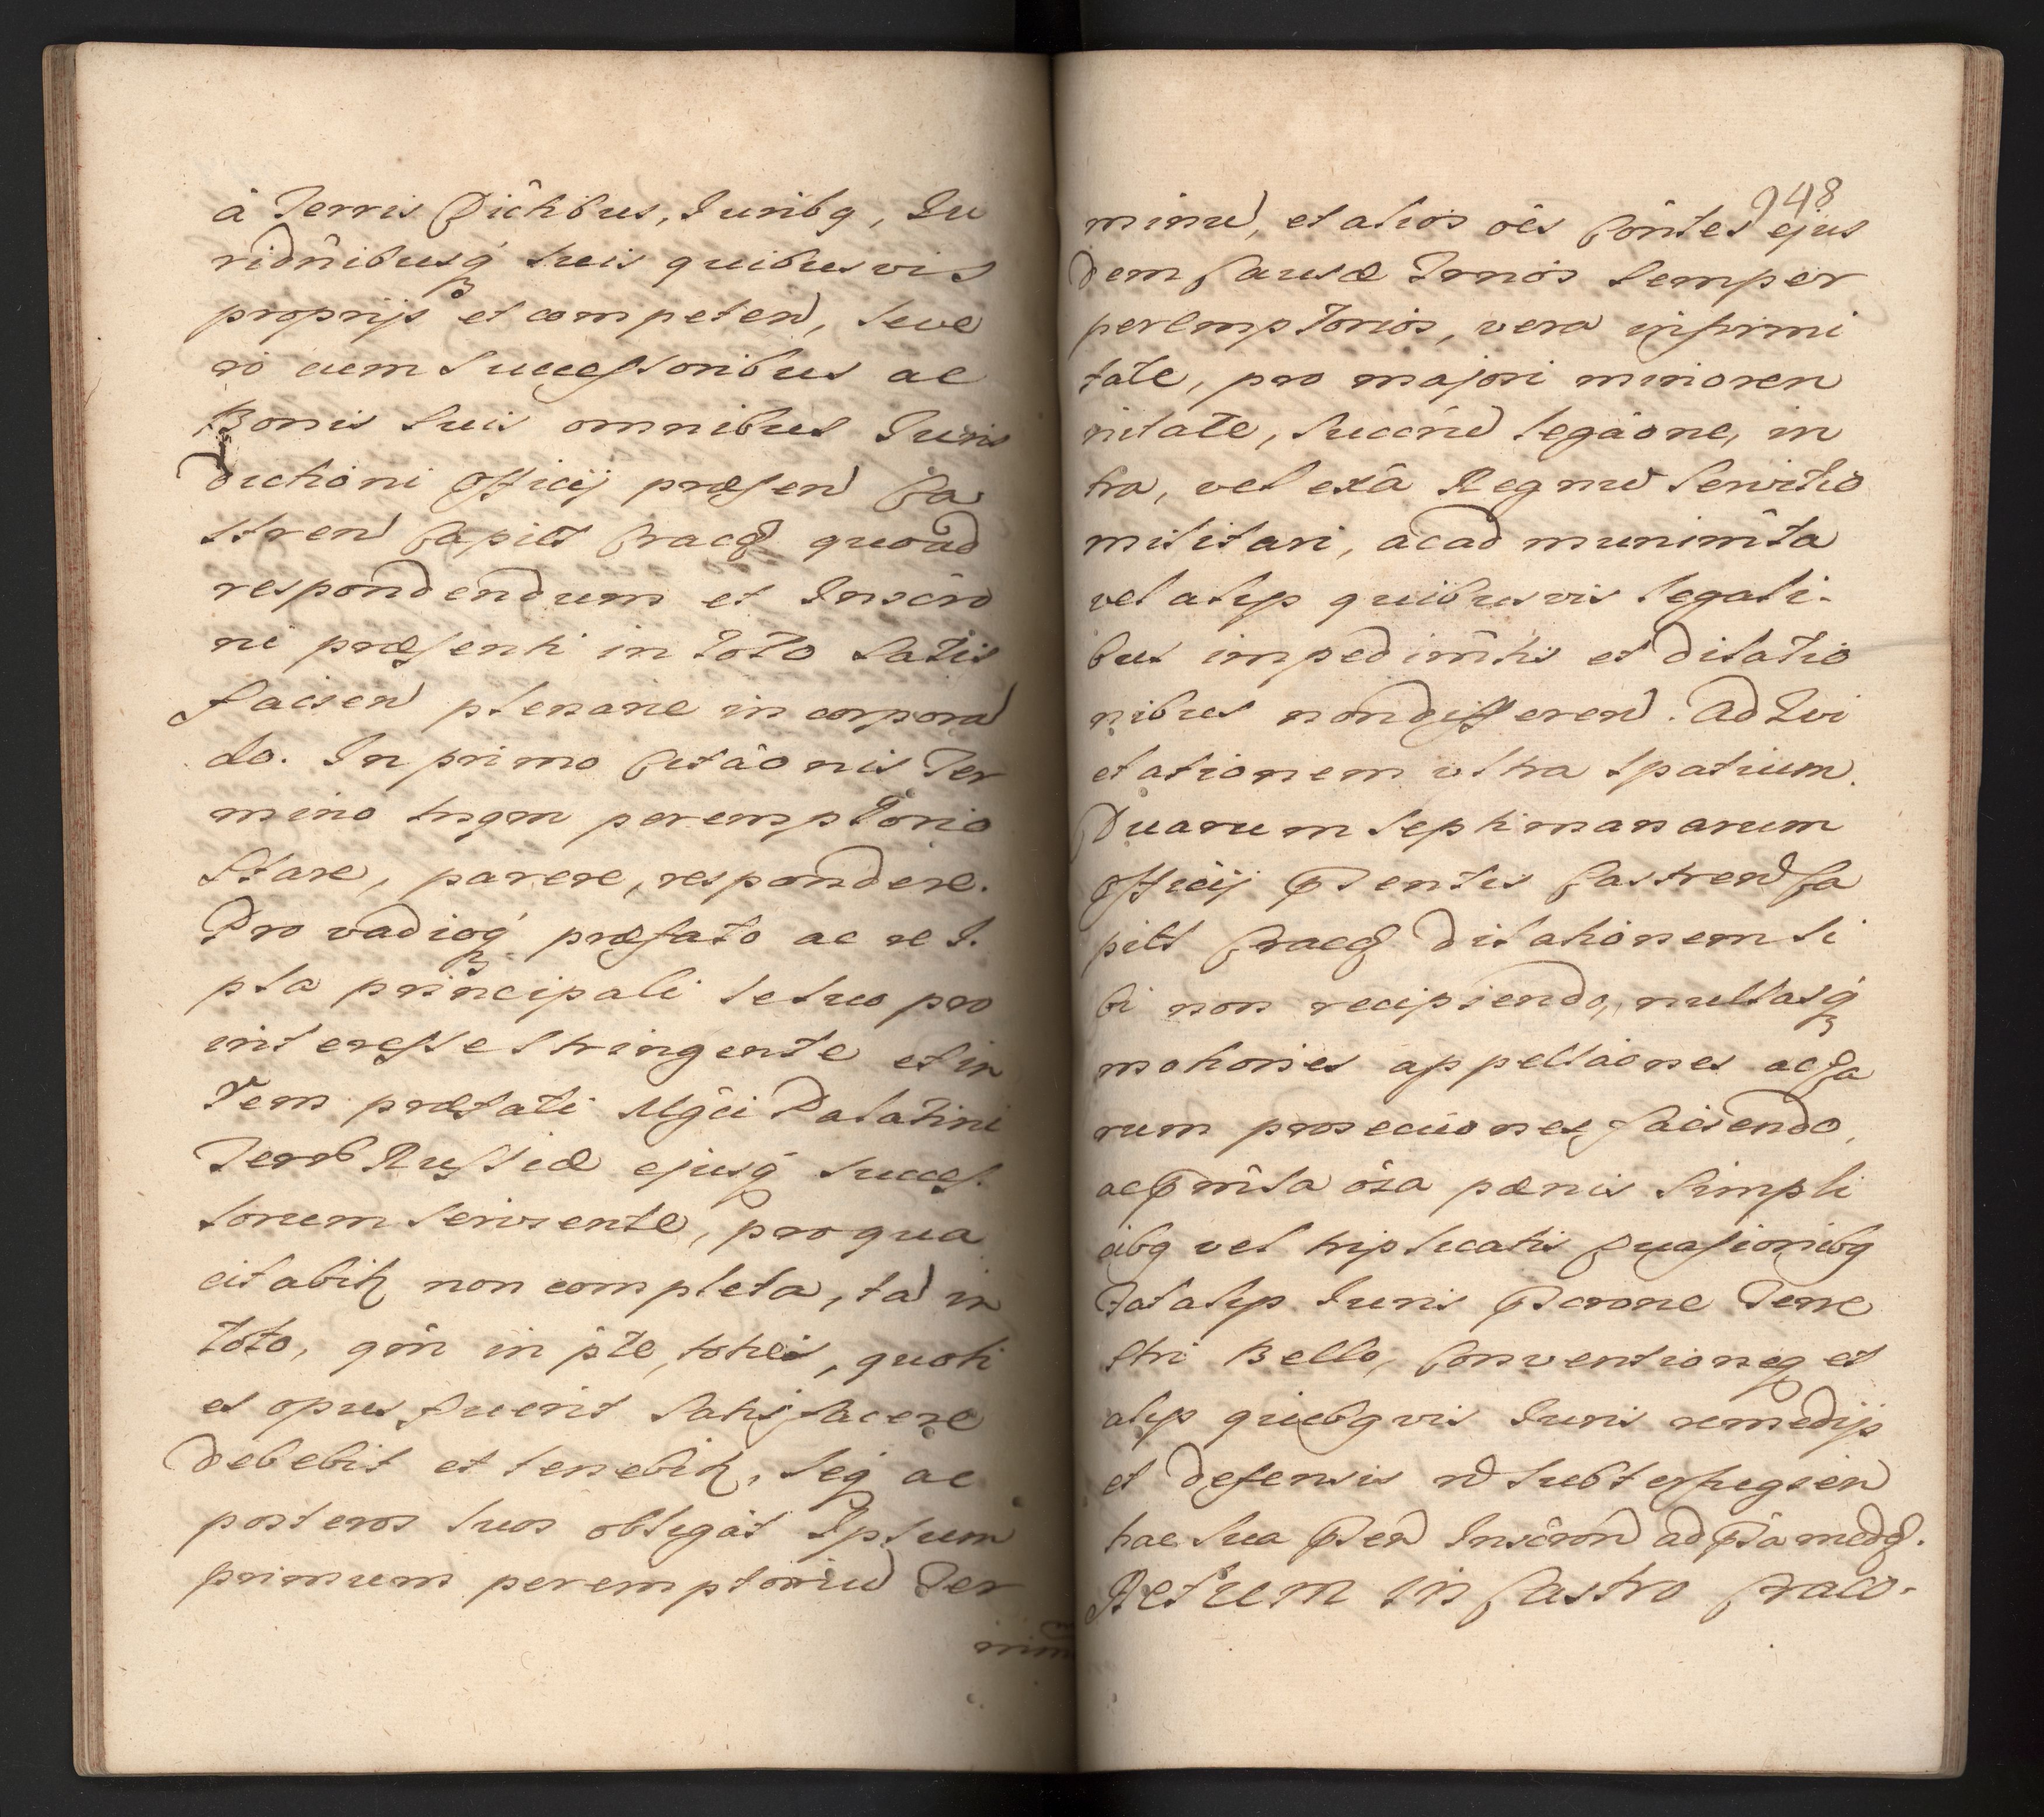 à Terris Dićtibus, Juribq, Ju
ridnibusq́ suis quibusvis
proprijs et competen, seve
ro cum Successoribus ac
Bonis suis omnibus Juris
dictioni Officij præsen Ca
stren Capitt Crac quoad
respondendum et Inscro
ni præsenti in Toto satis
facien plenarie incorporan
do. In primo Citâonis Ter
mino tnqm peremptorio
Stare, parere, respondere.
Pro vadioq́ præfato ac re J.
pta principali seluo pro
interesse stringente et in
rem præfati Mgci Palatini
Terrs Russiæ ejusq́ succes
sorum serviente, pro qua
citabit non completa, ta in
toto, qm in pte, toties, quoti
es opus fuerit satisfacere
debebit et tenebit, seq́ ac
posteros suos obligat Ipsum
primum peremptoriu Ter
minu
948
minu, et alios oes Contes ejus
dem Causæ Trnos semper
peremptorios, vera infirmi
tate, pro majori minoren
nitate, succru legâone, in
tra, vel exâ Regnu Servitio
militari, acad munimta
vel alijs quibusvis legali-
bus impedimtis et dilatio
nibus non differen. Ad Evi
etationem ultra spatium
Duarum septimanarum
Officij Psentis Castren Ca
pitt Crac dilationem si
bi non recipiendo, nullasq́
motiones appellaones acJa
rum prosecuiones faciendo,
ac Pmssa oia pænis simpli
cibq vel triplicatis Evasionibq
Tatalijs Juris Pscrone Terre
stri Bello, Conventioneq et
alijs quibqvis Juris remedijs
et defensis n subterfugien
hac sua Psen Inscron ad Pta med.
Actum in Castro Craco-